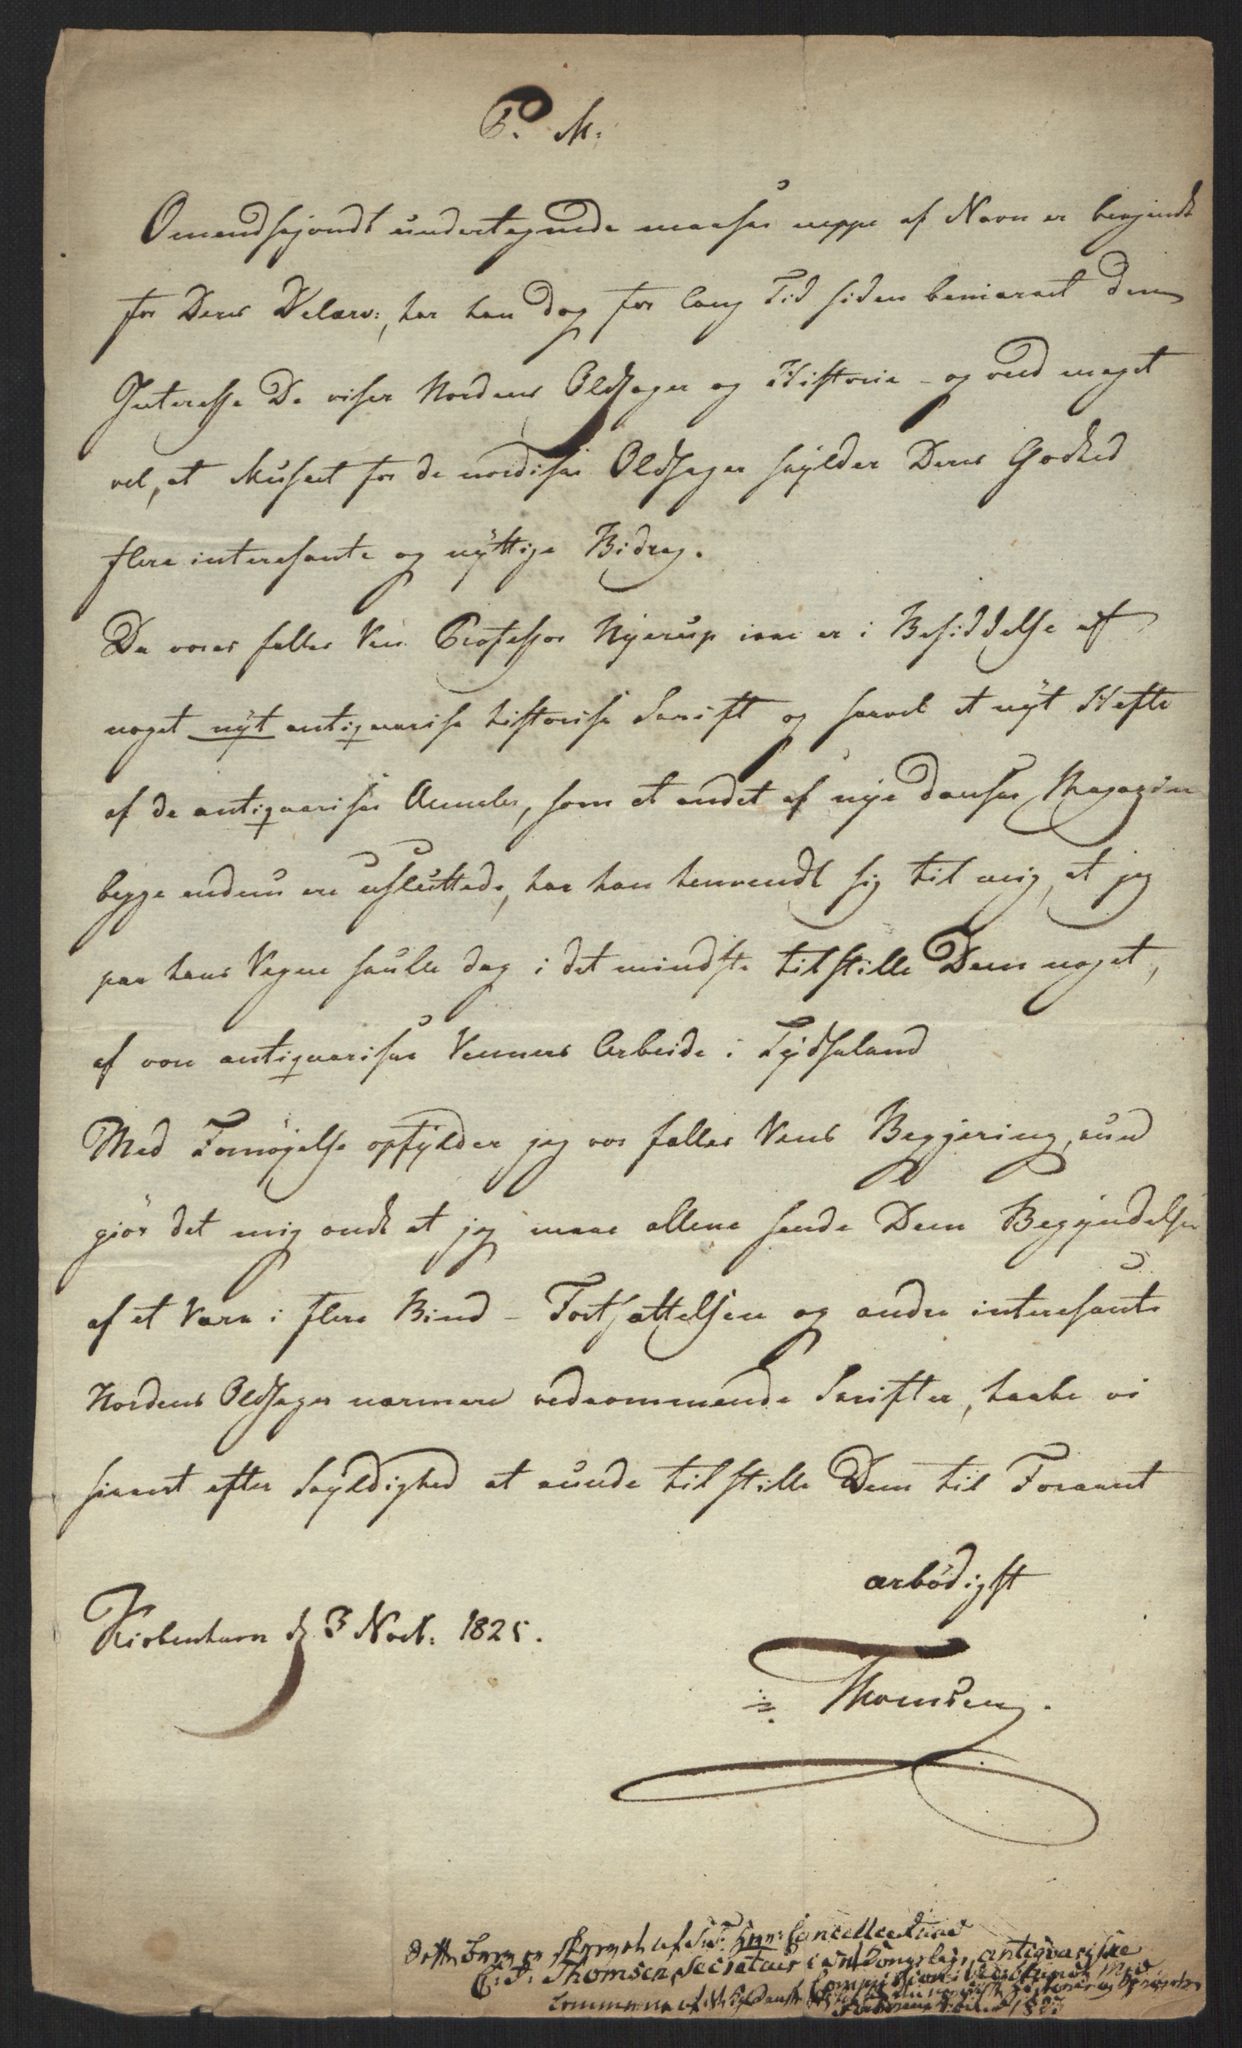 P. M.
Omendskjöndt undertegnede maaskee neppe af Navn er bekjendt
for Deres Velærv:, har han dog for lang Tid siden bemærket den
Interesse De viser Nordens Oldsager og Historie – og veed meget
vel, at Museet for de nordiske Oldsager skylder Deres Godhed
flere interesante og nyttige Bidrag.
Da vores fælles Ven Professor Nyerup ikke er i Besiddelse af
noget nyt antiqvarisk historisk Skrift og saavel et nyt Hefte
af de antiqvariske Annaler, som et andet af nye danske Magazin
begge endnu ere usluttede, har han henvendt sig til mig, at jeg
paa hans Vegne skulle dog i det mindste tilstille Dem noget,
af vore antiqvariske Venners Arbeide i Tydskland
Med Fornöjelse opfylder jeg vor fælles Vens Begjering, kun
gjör det mig ondt at jeg maae allene sende Dem Begyndelsen
af et Værk i flere Bind – Fortsættelsen og andre interesante
Nordens Oldsager nærmere vedkommende Skrifter, haabe vi
sikkert efter Skyldighed at kunde tilstille Dem til Foraaret
ærbödigst
Kiöbenhavn d 3 Novb: 1825.
Thomsen.
Dette Brev er skrevet af Hr: Cancellieraad
C: J: Thomsen, Secretair i den Kongelige antiqvariske
Commission i